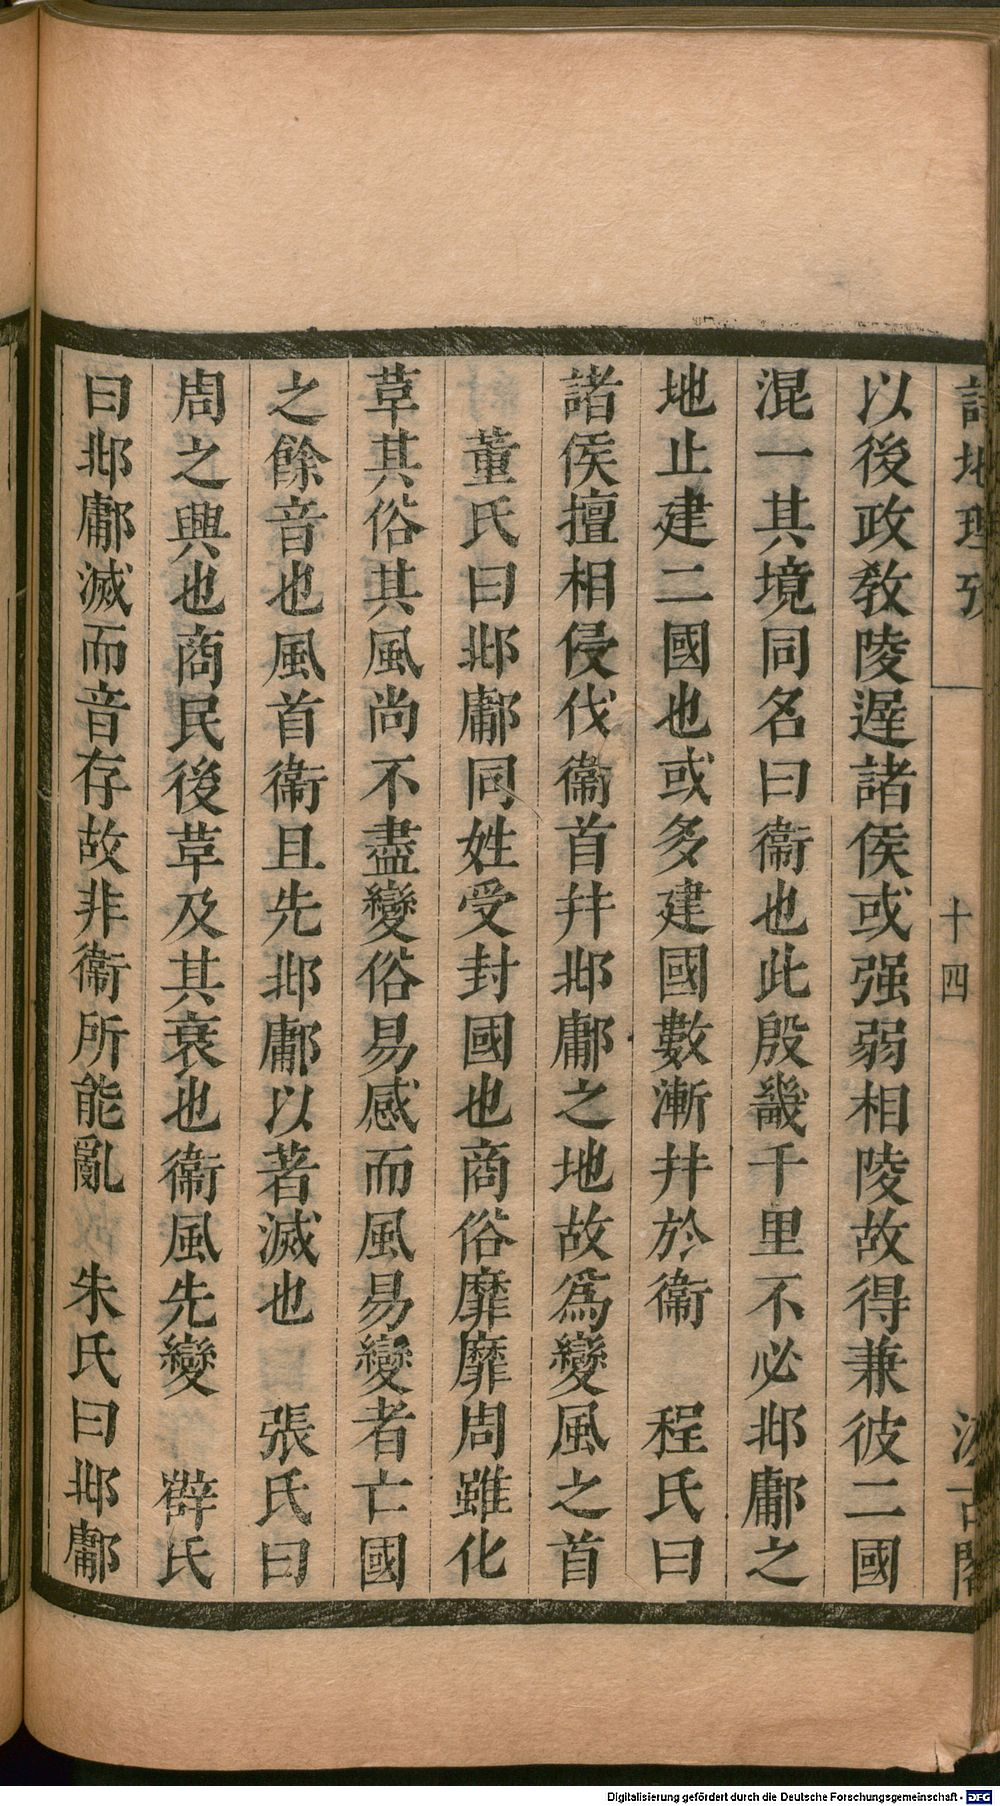 詩地理攷
十四
汲古閣
以後政敎陵遲諸侯或强弱相陵故得兼彼二國
混一其境同名曰衞也此殷畿千里不必邶鄘之
地止建二國也或多建國數漸幷於衞　程氏曰
諸侯擅相侵伐衞首幷邶鄘之地故爲變風之首
董氏曰邶鄘同姓受封國也商俗靡靡周雖化
草其俗其風尚不盡變俗易感而風易變者亡國
之餘音也風首衞且先邶鄘以著滅也　張氏曰
周之興也商民後草及其衰也衞風先變　薛氏
曰邶鄘滅而音存故非衞所能亂　朱氏曰邶鄘
Digitalisierung gefördert durch die Deutsche Forschungsgemeinschaft - DFG